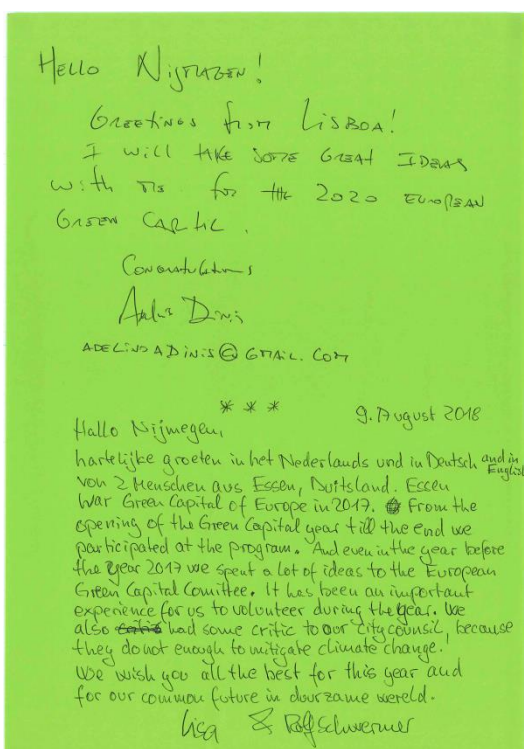 HELLO NIJMEGEN!
GREETINGS from LISBOA!
I will TAKE SOME GREAT IDEAS
with ME for the 2020 EUROPEAN
GREEN CAPITAL.
CONGRATULATIONS
Dinis
ADELINOADINIS@GMAIL.COM
* * *
9. August 2018
Hallo Nijmegen,
hartelijke groeten in het Nederlands und in Deutsch and in English
von 2 Menschen aus Essen, Duitsland. Essen
war Green Capital of Europe in 2017. From the
opening of the Green Capital year till the end we
participated at the program. And even in the year before
the year 2017 we spent a lot of ideas to the European
Green Capital Comittee. It has been an important
experience for us to volunteer during the year. We
also had some critic to our city counsil, because
they do not enough to mitigate climate change!
We wish you all the best for this year and
for our common future in duurzame wereld.
Lisa & Rolf Schwermer